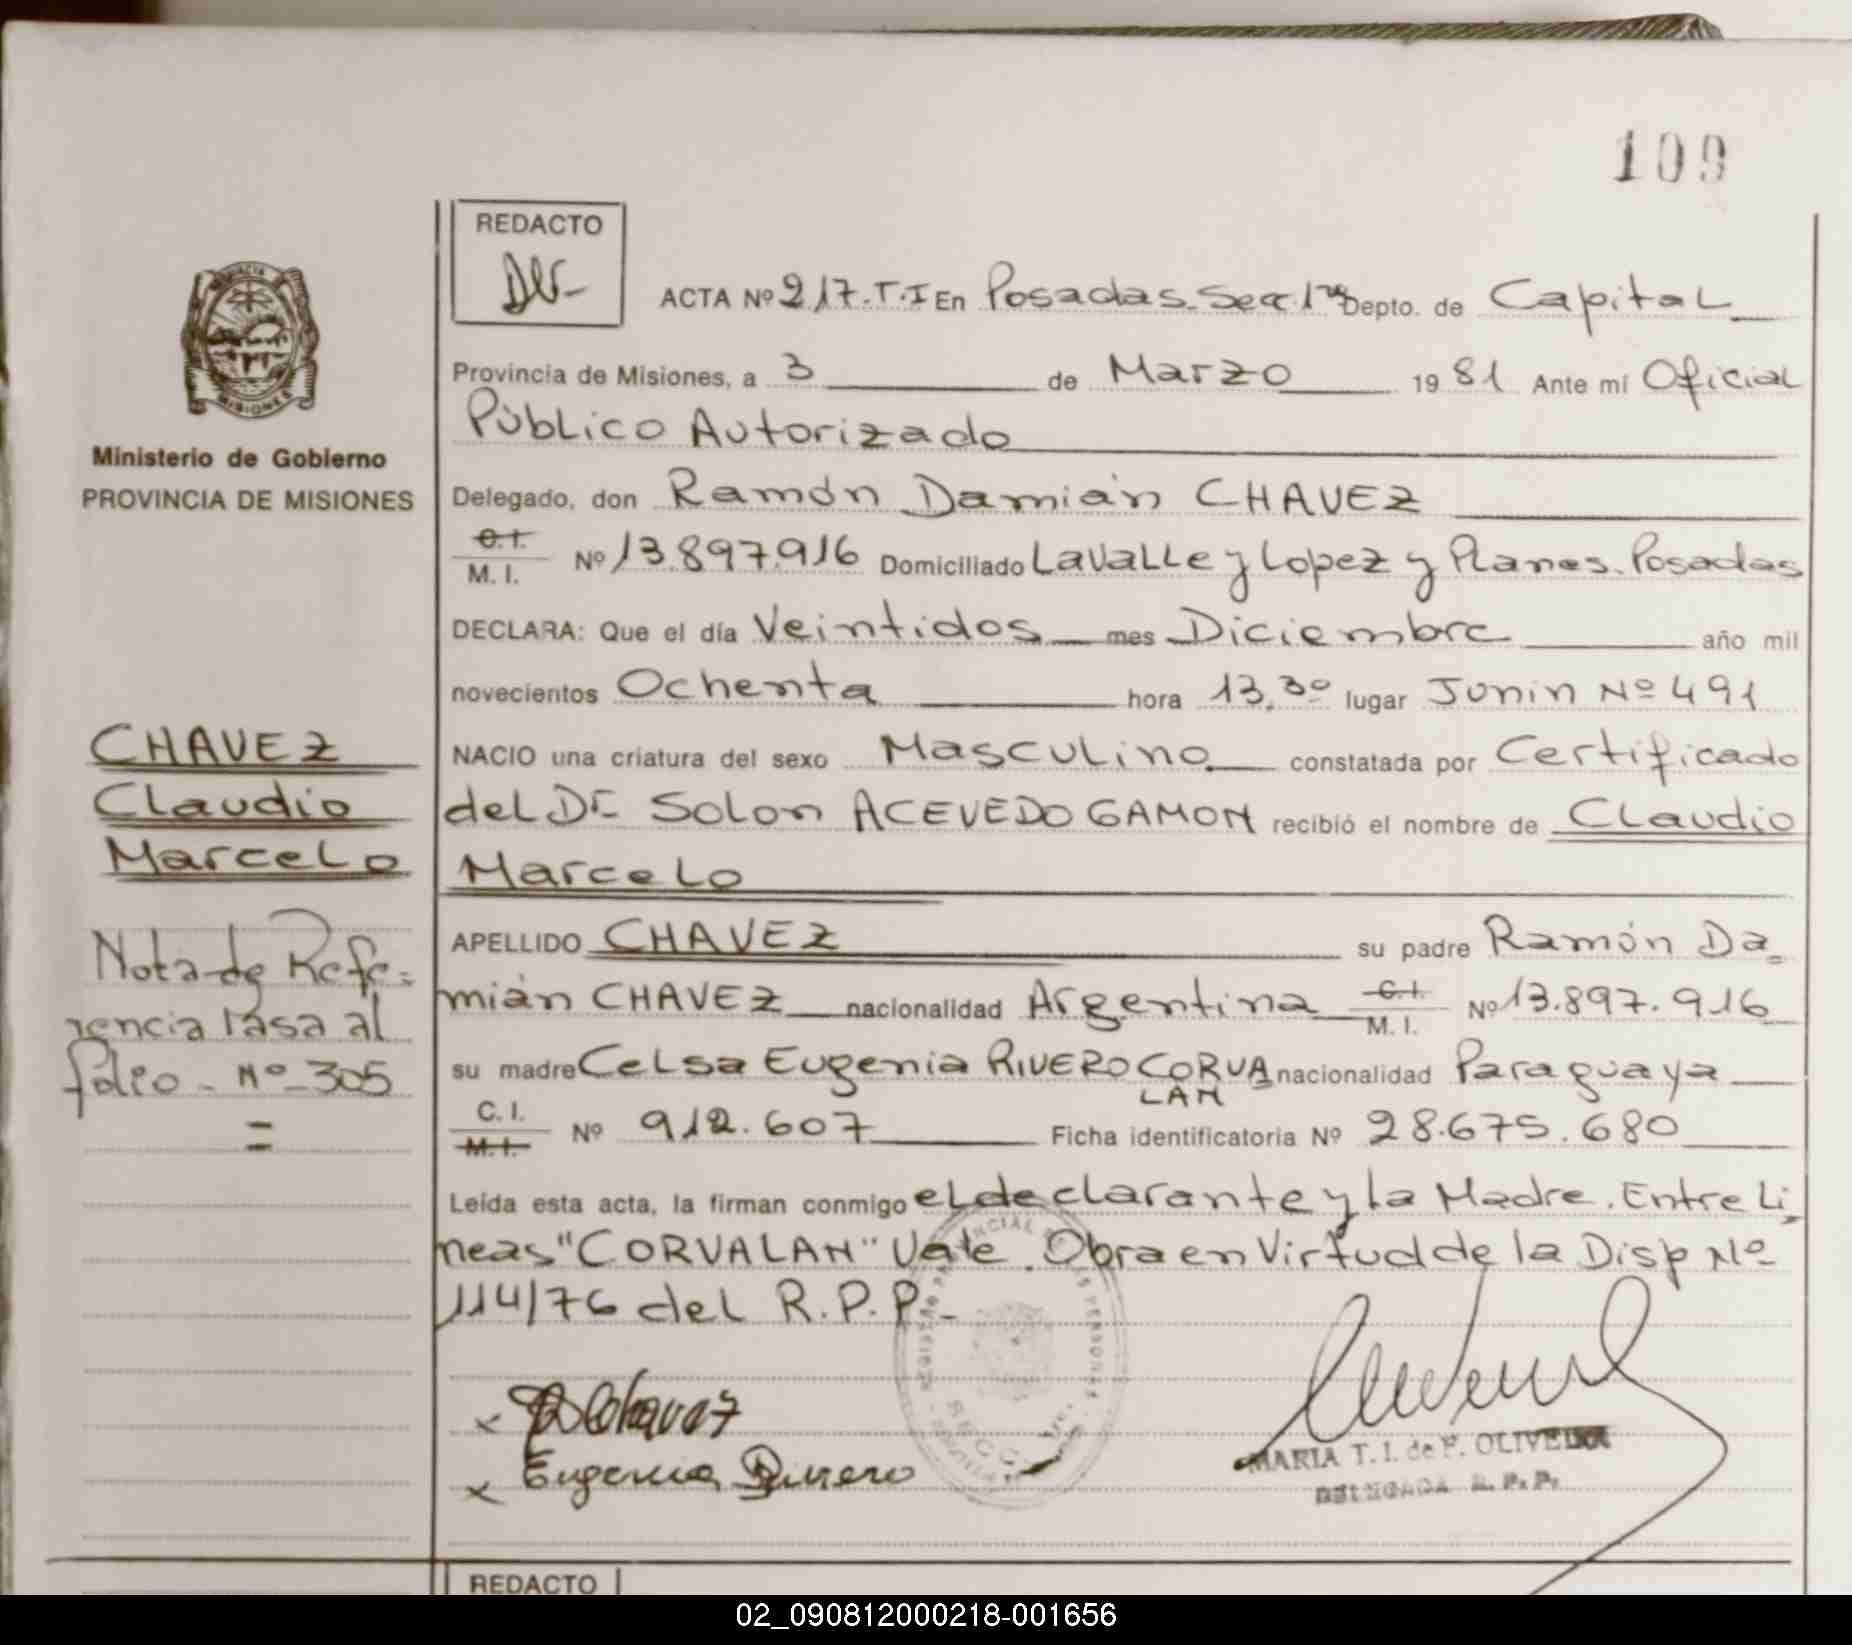 109
REDACTO
ACTA Nº 217.T.I En Posadas. Secc. 1ra Depto. de Capital
Provincia de Misiones, a 3 de Marzo 1981 Ante mí Oficial
Público Autorizado
Ministerio de Gobierno
PROVINCIA DE MISIONES
Delegado, don Ramón Damián CHAVEZ
C.I.
M.I. Nº 13.897.916 Domiciliado Lavalle y Lopez y Planes. Posadas
DECLARA: Que el día Veintidos mes Diciembre año mil
novecientos Ochenta hora 13,30 lugar Junin Nº 491
CHAVEZ
Claudio
Marcelo
NACIO una criatura del sexo Masculino constatada por Certificado
del Dr Solon ACEVEDO GAMON recibió el nombre de Claudio
Marcelo
Nota de Refe=
rencia pasa al
folio - Nº - 305
=
APELLIDO CHAVEZ su padre Ramón Da=
mián CHAVEZ nacionalidad Argentina C.I.
M.I. Nº 13.897.916
su madre Celsa Eugenia RIVERO CORVA
LAN nacionalidad Paraguaya
C.I.
M.I. Nº 912.607 Ficha identificatoria Nº 28.675.680
Leída esta acta, la firman conmigo el declarante y la Madre. Entre Li
neas "CORVALAN" Vale. Obra en Virtud de la Disp Nº
114/76 del R.P.P.-
x Chavez
x Eugenia Rivero
MARIA T. I. de P. OLIVEIRA
DELEGADA R. P. P.
REDACTO
02_090812000218-001656